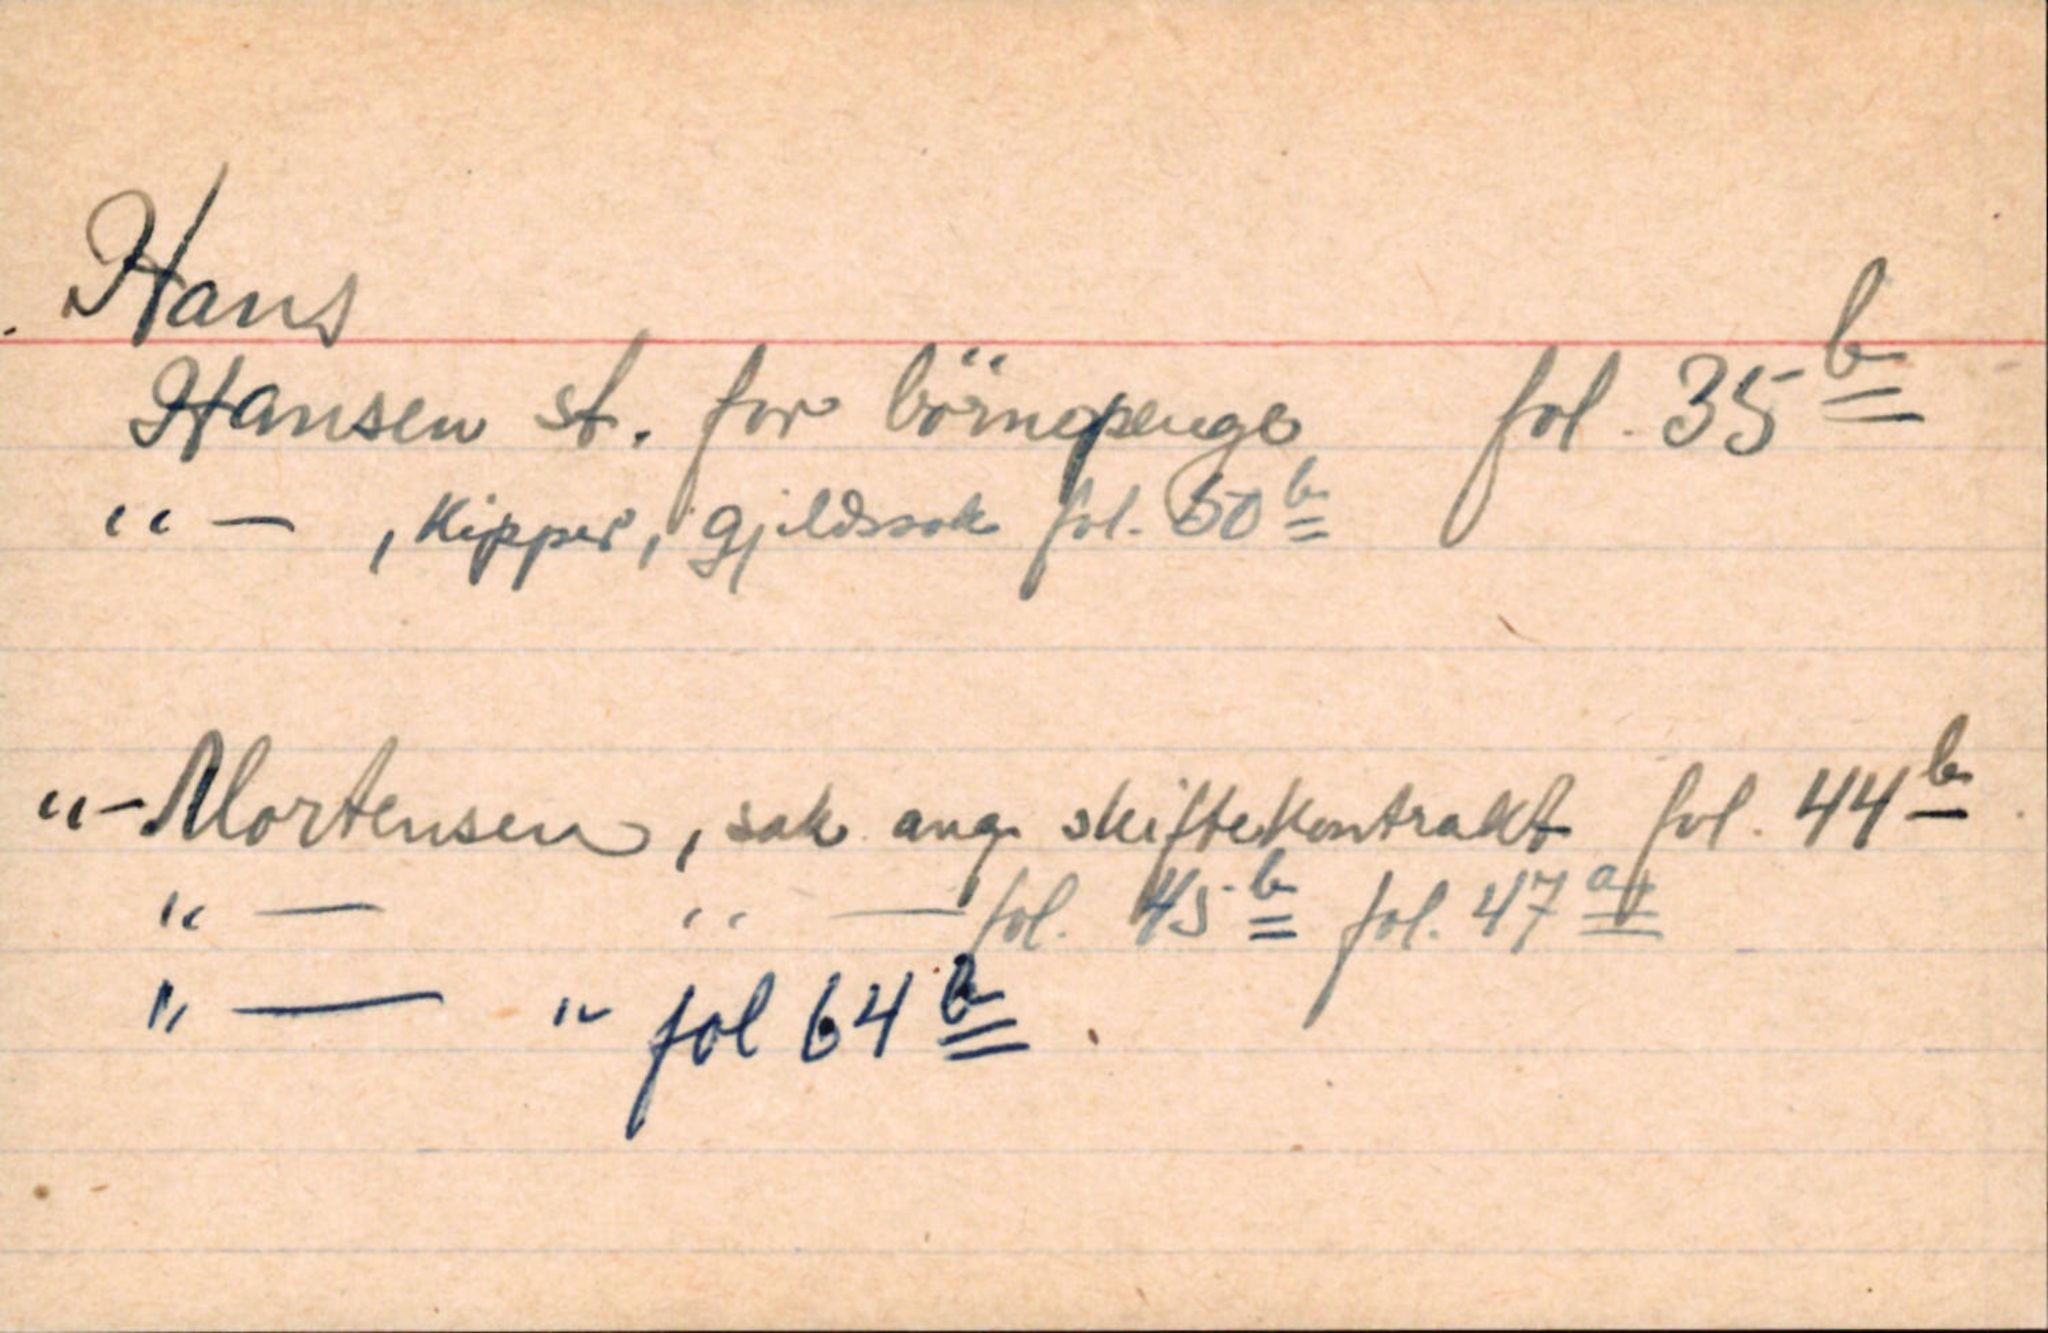 Hans
Hansen st. for börnepenge fol. 35 b
"— , Kipper, gjeldssak fol. 50 b
"— Mortensen, sak ang. skiftekontrakt fol. 44 b
"— "— fol. 45 b fol. 47 a
"— " fol 64 b